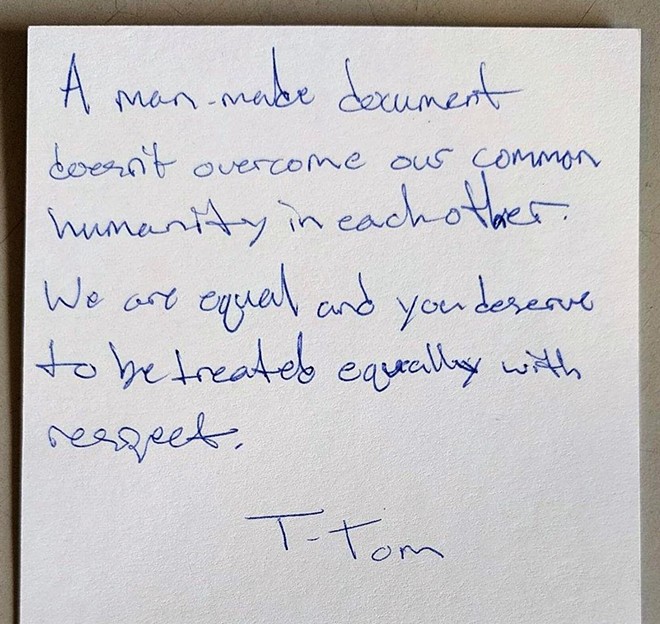 A man-made document
doesn't overcome our common
humanity in each other.
We are equal and you deserve
to be treated equally with
respect.
T-Tom